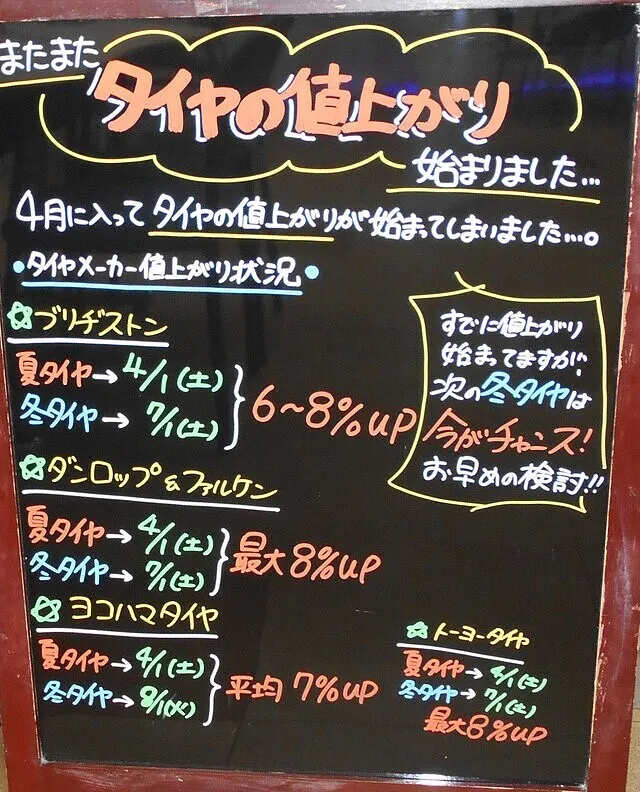 またまた
タイヤの値上がり
始まりました…
4月に入ってタイヤの値上がりが始まってしまいました…。
•タイヤメーカー値上がり状況•
ブリヂストン
夏タイヤ→4/1(土)
冬タイヤ→7/1(土)
6~8%UP
すでに値上がり
始まってますが、
次の冬タイヤは
今がチャンス!
お早めの検討!!
ダンロップ&ファルケン
夏タイヤ→4/1(土)
冬タイヤ→7/1(土)
最大8%UP
ヨコハマタイヤ
夏タイヤ→4/1(土)
冬タイヤ→8/1(火)
平均7%UP
トーヨータイヤ
夏タイヤ→4/1(土)
冬タイヤ→7/1(土)
最大8%UP